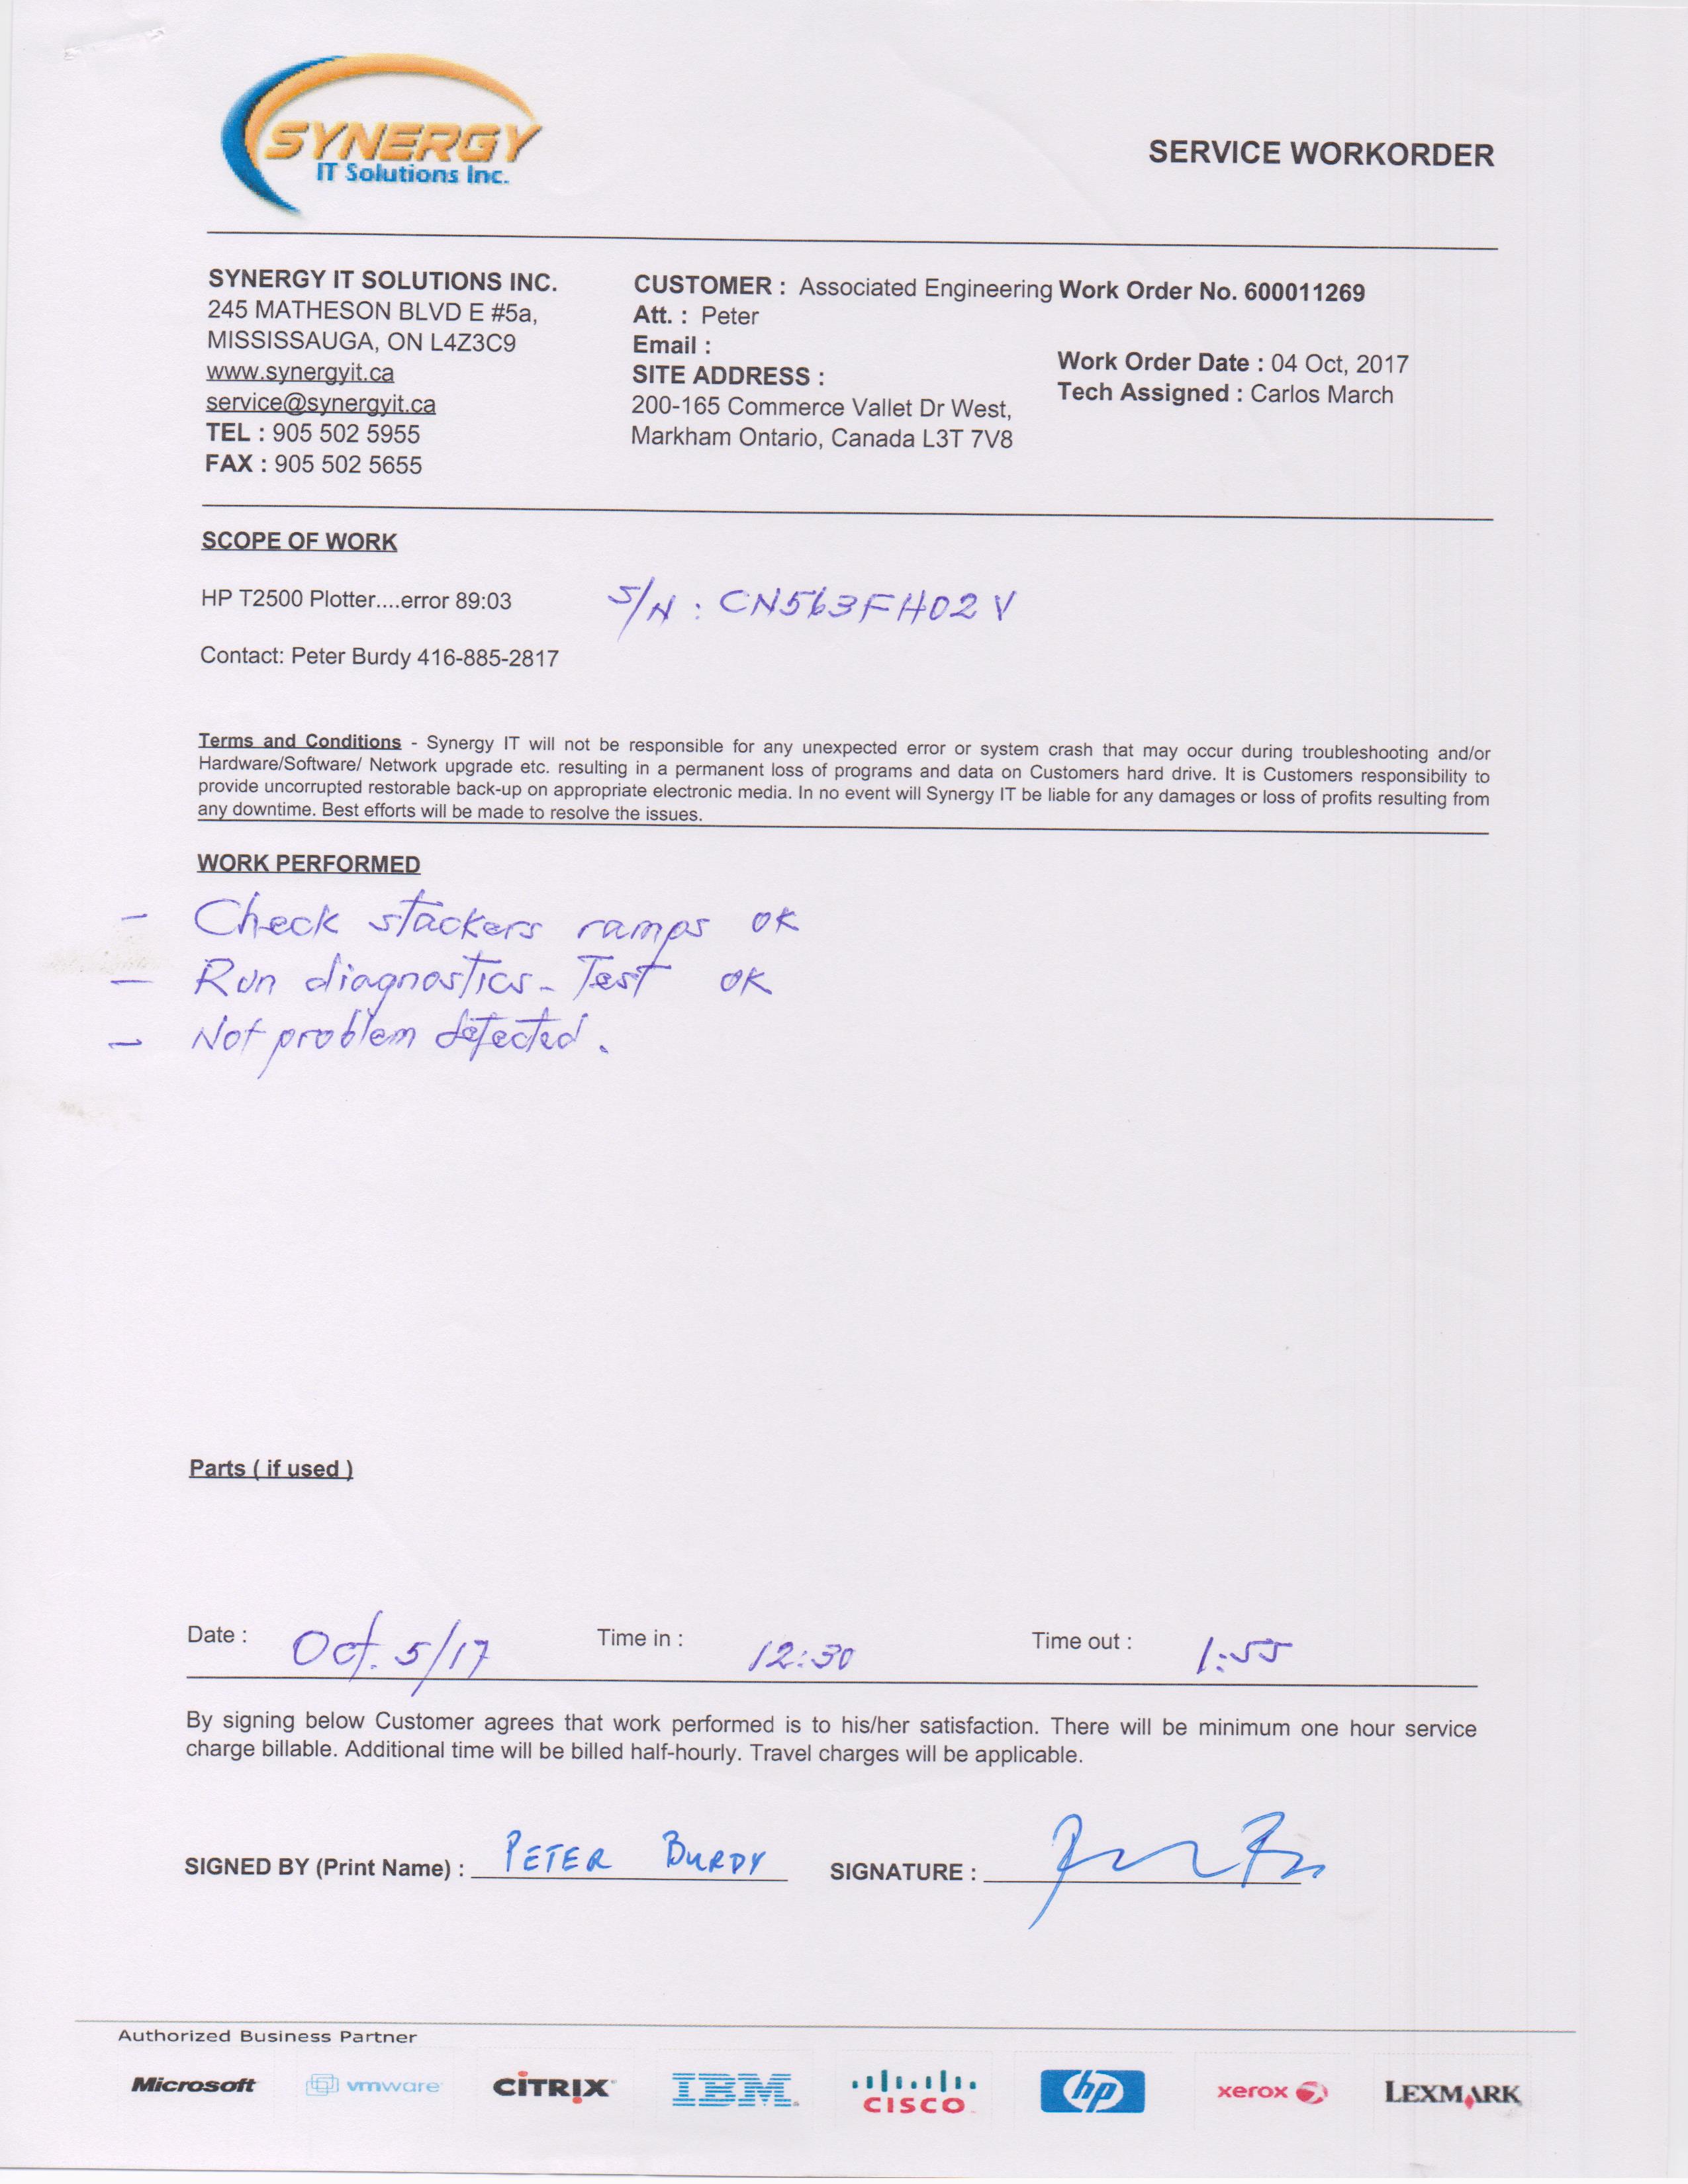 SYNERGY
IT Solutions Inc.
SERVICE WORKORDER
SYNERGY IT SOLUTIONS INC.
245 MATHESON BLVD E #5a,
MISSISSAUGA, ON L4Z3C9
www.synergyit.ca
service@synergyit.ca
TEL : 905 502 5955
FAX : 905 502 5655
CUSTOMER : Associated Engineering
Att. : Peter
Email :
SITE ADDRESS :
200-165 Commerce Vallet Dr West,
Markham Ontario, Canada L3T 7V8
Work Order No. 600011269
Work Order Date : 04 Oct, 2017
Tech Assigned : Carlos March
SCOPE OF WORK
HP T2500 Plotter....error 89:03 S/N : CN563FH02V
Contact: Peter Burdy 416-885-2817
Terms and Conditions - Synergy IT will not be responsible for any unexpected error or system crash that may occur during troubleshooting and/or
Hardware/Software/ Network upgrade etc. resulting in a permanent loss of programs and data on Customers hard drive. It is Customers responsibility to
provide uncorrupted restorable back-up on appropriate electronic media. In no event will Synergy IT be liable for any damages or loss of profits resulting from
any downtime. Best efforts will be made to resolve the issues.
WORK PERFORMED
- Check stackers ramps OK
- Run diagnostics - Test OK
- Not problem detected.
Parts ( if used )
Date : Oct. 5/17 Time in : 12:30 Time out : 1:55
By signing below Customer agrees that work performed is to his/her satisfaction. There will be minimum one hour service
charge billable. Additional time will be billed half-hourly. Travel charges will be applicable.
SIGNED BY (Print Name) : PETER BURDY SIGNATURE :
Authorized Business Partner
Microsoft vmware CITRIX IBM CISCO hp xerox LEXMARK